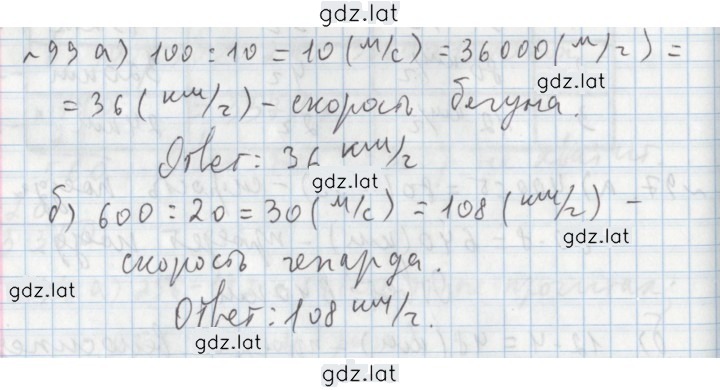 gdz.lat
№99 а) 100 : 10 = 10 (м/с) = 36000 (м/г) =
gdz.lat
= 36 (км/г) - скорость бегуна.
Ответ: 36 км/г
gdz.lat
б) 600 : 20 = 30 (м/с) = 108 (км/г) -
gdz.lat
скорость гепарда.
gdz.lat
Ответ: 108 км/г.
gdz.lat
gdz.lat